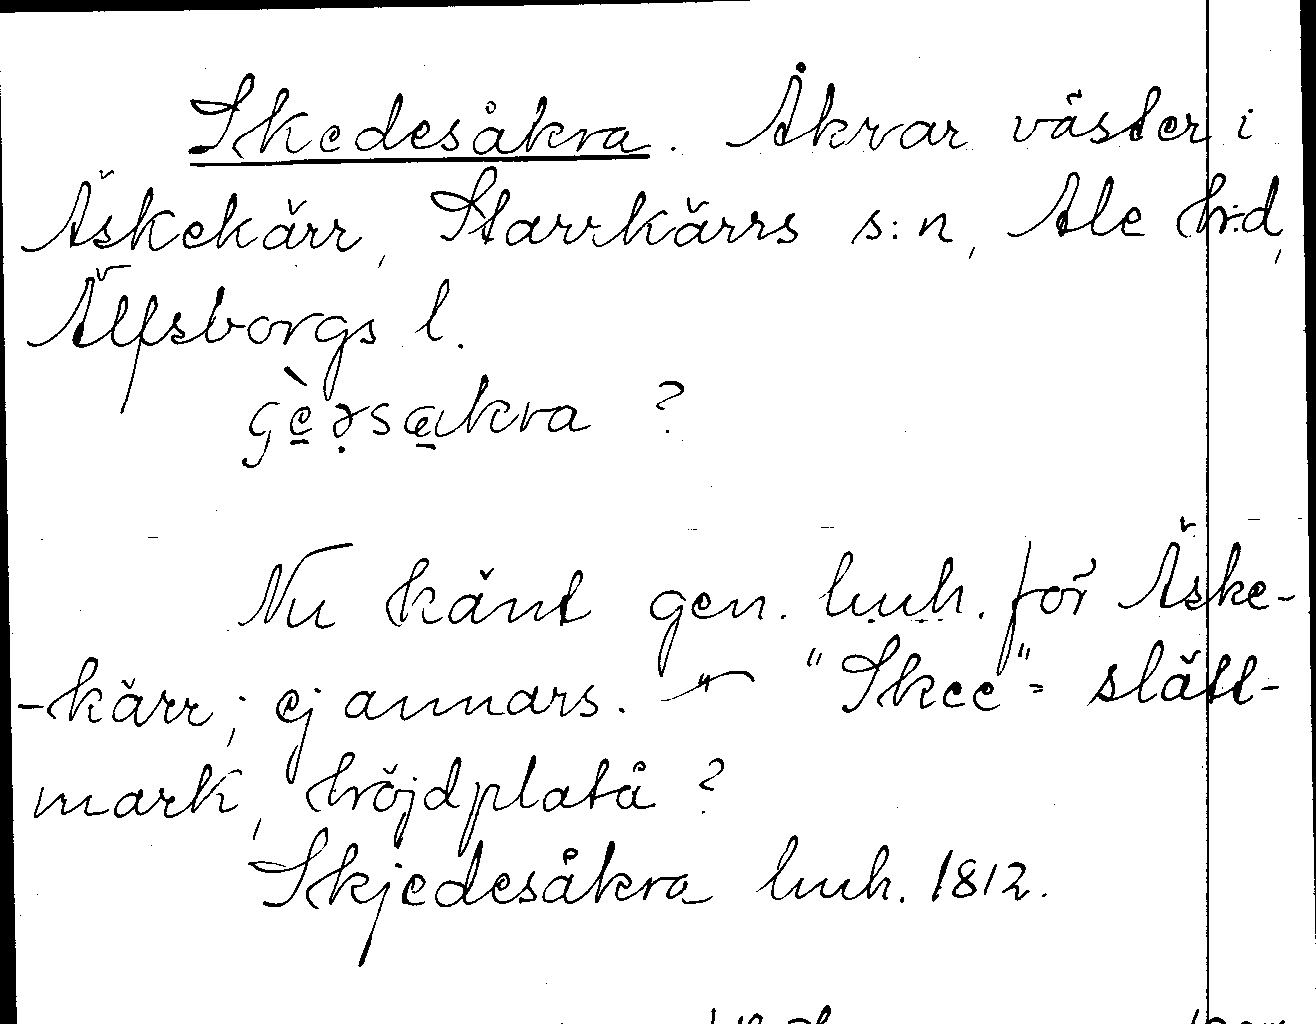 Skedesåkra. Åkrar väster i
Äskekärr, Starrkärrs s:n, Ale h:d,
Älfsborgs l.
Nu känt gen. lmh. för Äske-
-kärr; ej annars. "Skee" = slätt-
mark, höjdplatå ?
Skjedesåkra lmh. 1812.